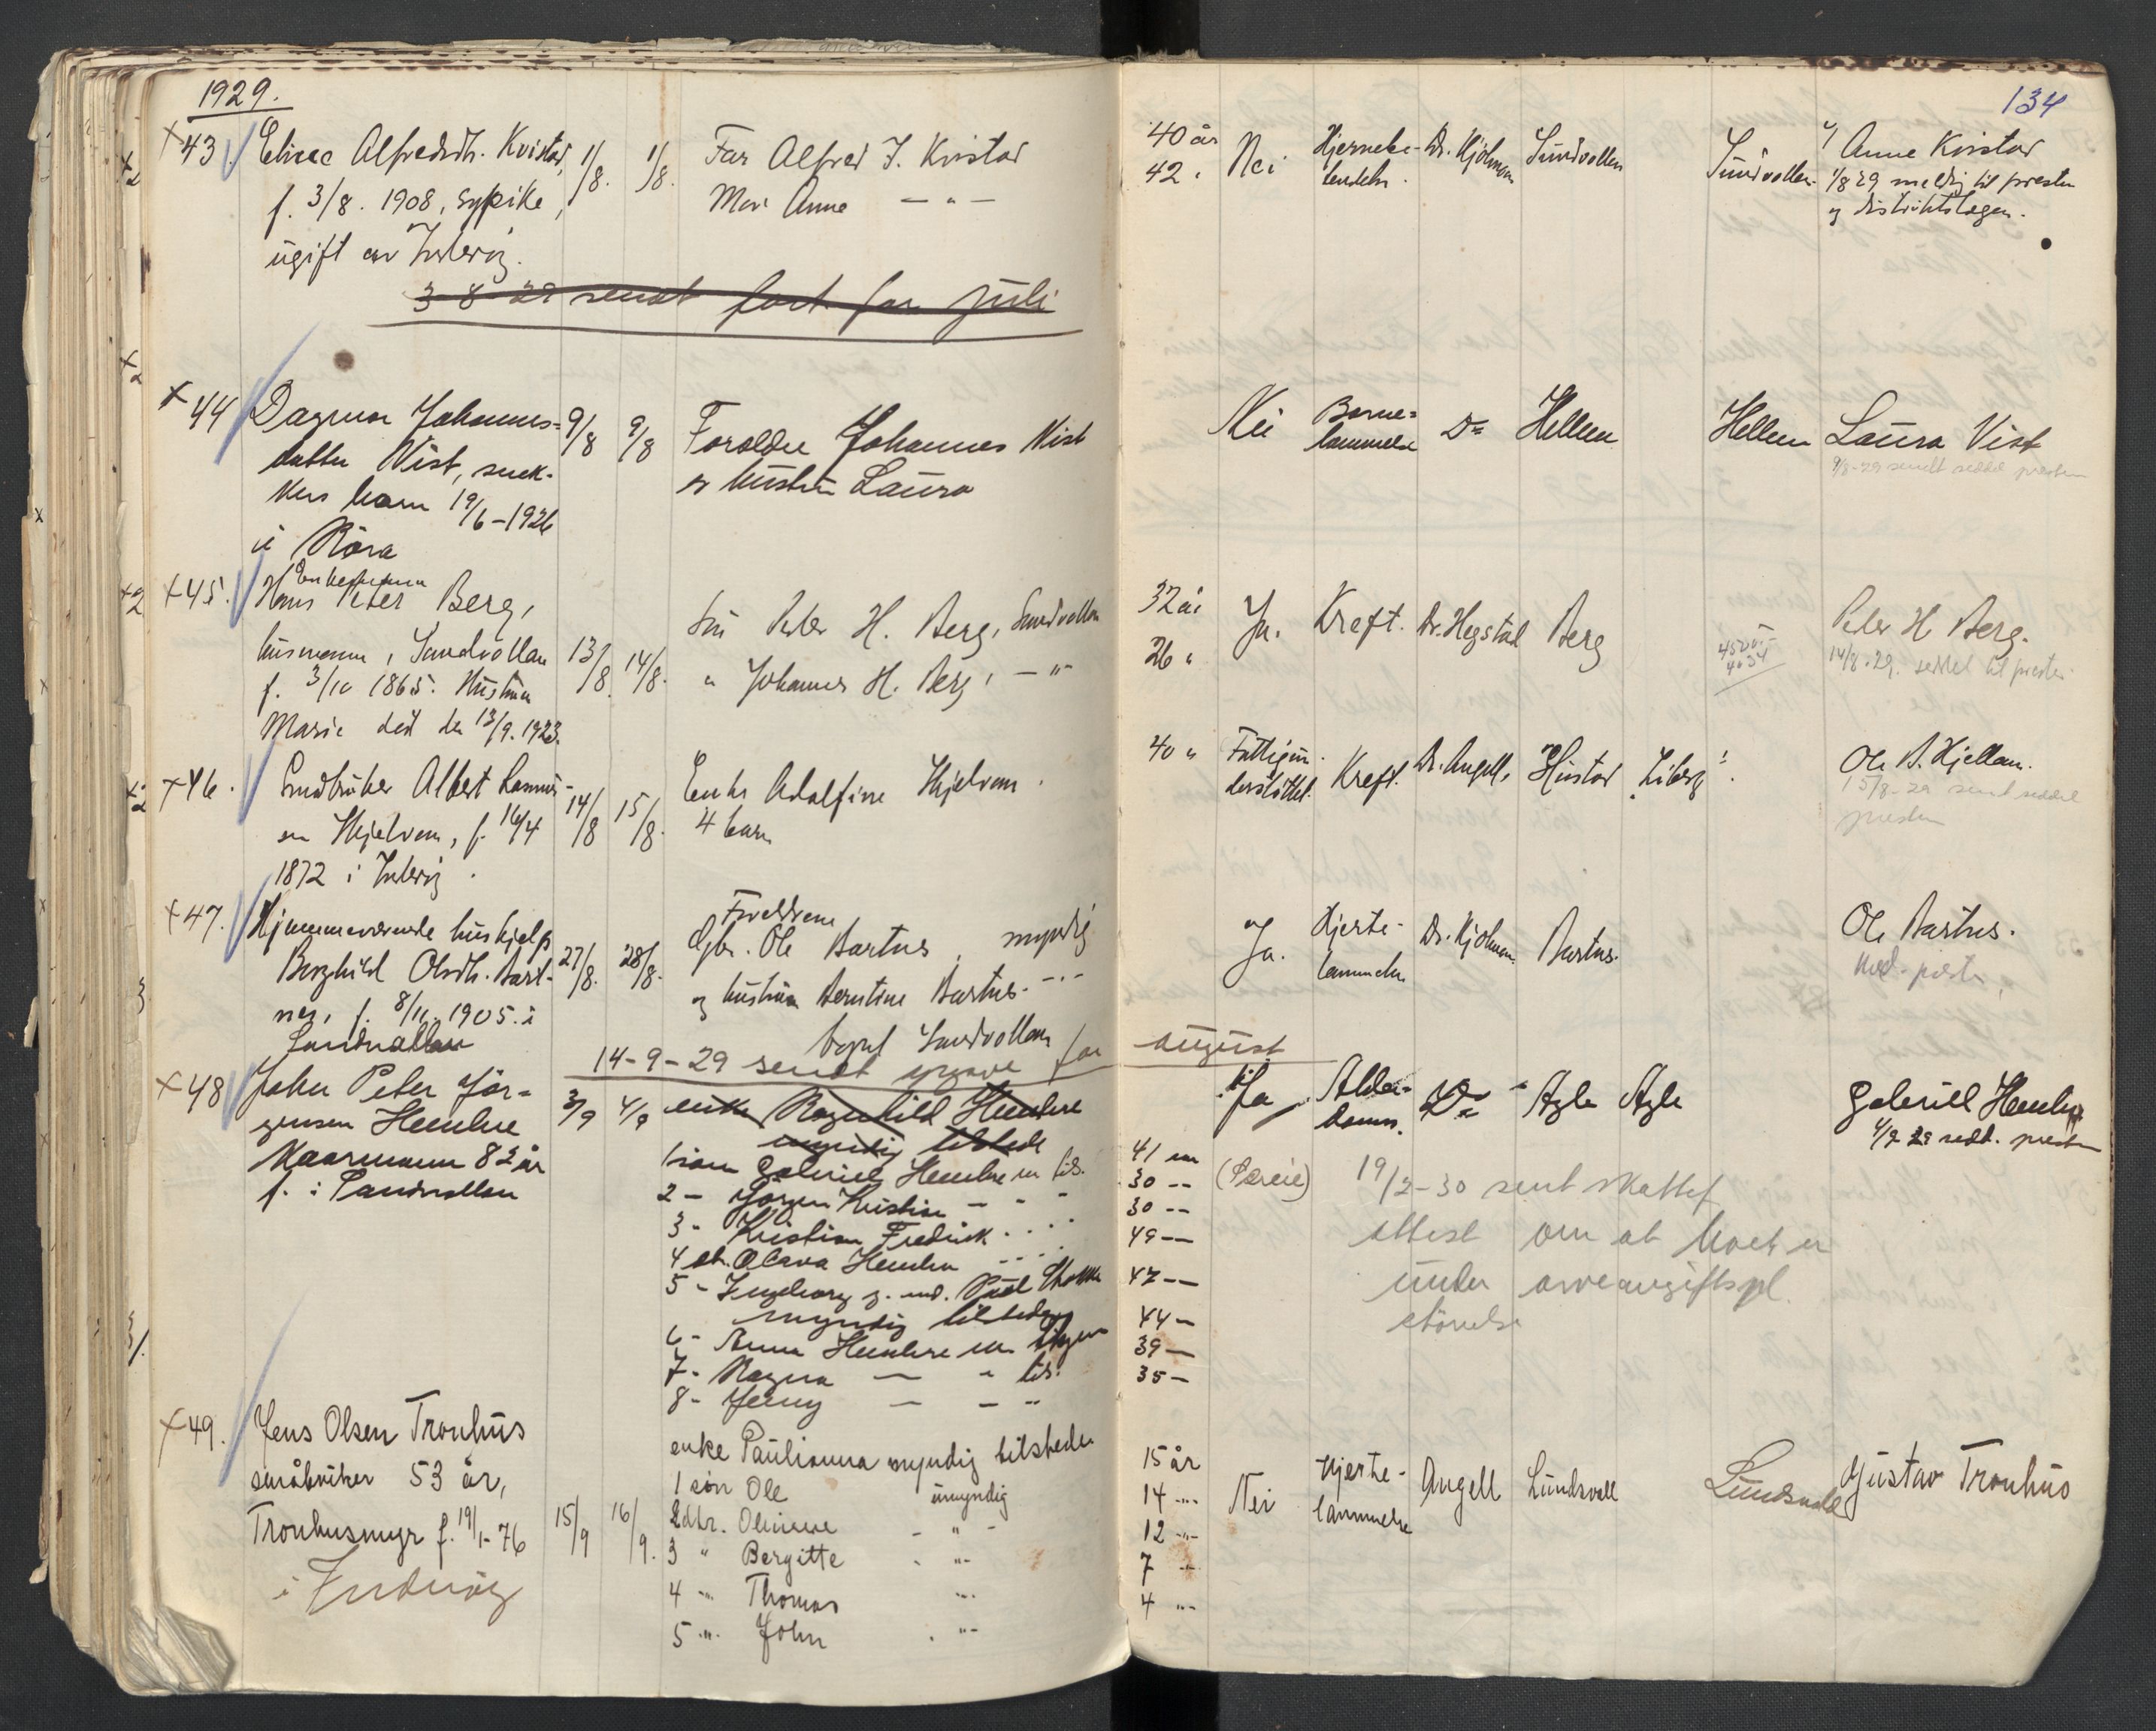 1929.
134
+43. Alfredsdtr. Kvistad,
f. 3/8. 1908, sypike,
ugift av Inderøy.
1/8. 1/8.
Far Alfred J. Kvistad
Mor Anne — " —
40 år
42 "
Nei
Hjernebe-
tendelse.
Dr. Kjölmann
Sundvollen
Sundvollen.
Anne Kvistad
1/8 29 melding til presten
og distriktslægen.
3-8-29 sendt fort. for juli
+44 Dagrun Johannes-
datter Vist, snek-
kers barn 19/6-1926
i Röra
9/8 9/8
Foreldre Johannes Vist
og hustru Laura
Nei
Barne-
lammelse
Hellem
Hellem
Laura Vist
9/8-29 sendt seddel presten
+45. Enkemann
Hans Peter Berg,
husmann, Sandvollan
f. 3/10 1865. Hustrun
Marie död den 13/9. 1923.
13/8. 14/8.
Sön Peder H. Berg, Sandvollan
" Johannes H. Berg, — " —
32 år
26 "
Ja.
Kreft.
Dr. Hegstad
Berg
Peder H Berg.
14/8.29. seddel til presten.
+46. Småbruker Albert
en Hjelvem, f. 16/4
1872 i Inderøy.
14/8 15/8.
Enke Adolfine Hjelvem.
4 barn
40 "
Fattigun-
derstöttet.
Kreft.
Dr. Angell,
Hustad
Ole A. Hjellan.
15/8-29 sendt seddel
presten
+47. Hjemmeværende hushjelp
Berghild Olsdtr. Bart-
nes, f. 8/11. 1905. i
Sandvollan
27/8. 28/8.
Foreldrene
Gbr. Ole Bartnes, myndig
og hustru Berntine Bartnes. — " —
bopel Sandvollan
Ja.
Hjerte-
lammelse
Dr. Kjölmann.
Bartnes.
Ole Bartnes.
Med. presten
14-9-29 sendt opgave for august
+48 John Peter Jör-
gensen Hembre
Kaarmann 82 år
f. i Sandvollan
3/9 4/9
enke Ragnhild Hembre
myndig tilstede
1 sön Gabriel Hembre m til.
2 — Jörgen Kristian — " "
3 - Kristian Fredrik
4 dt. Olava Hembre
5 - Ingeborg g. med. Paul
myndig tilstede
6 - Anna Hembre m
7 - Ragna — " til.
8 - Jenny — — "
41 m
30 --
30 --
49 —
47 —
44 —
39 —
35 —
Ja.
Alder-
domm.
Agle
Agle
Gabriell Hembre
4/9 29 sedd. presten
19/2-30 sendt skattef.
attest om at boet er
under arveavgiftspl.
störrelse
+49. Jens Olsen Tronhus
småbruker 53 år,
Tronhusmyr f. 19/1-76
i Inderöy
15/9 16/9.
enke Paulianna myndig tilstede
1 sön Ole umyndig
2 dtr. Oliniane - " -
3 " Bergitte - " -
4 -"- Thomas -"-
5 -"- John . "-
15 år
14 -"-
12 -"-
7 -"-
4 "-
Nei
Hjerte-
lammelse
Angell
Lundsvall
Lundsvall
Gustav Tronhus